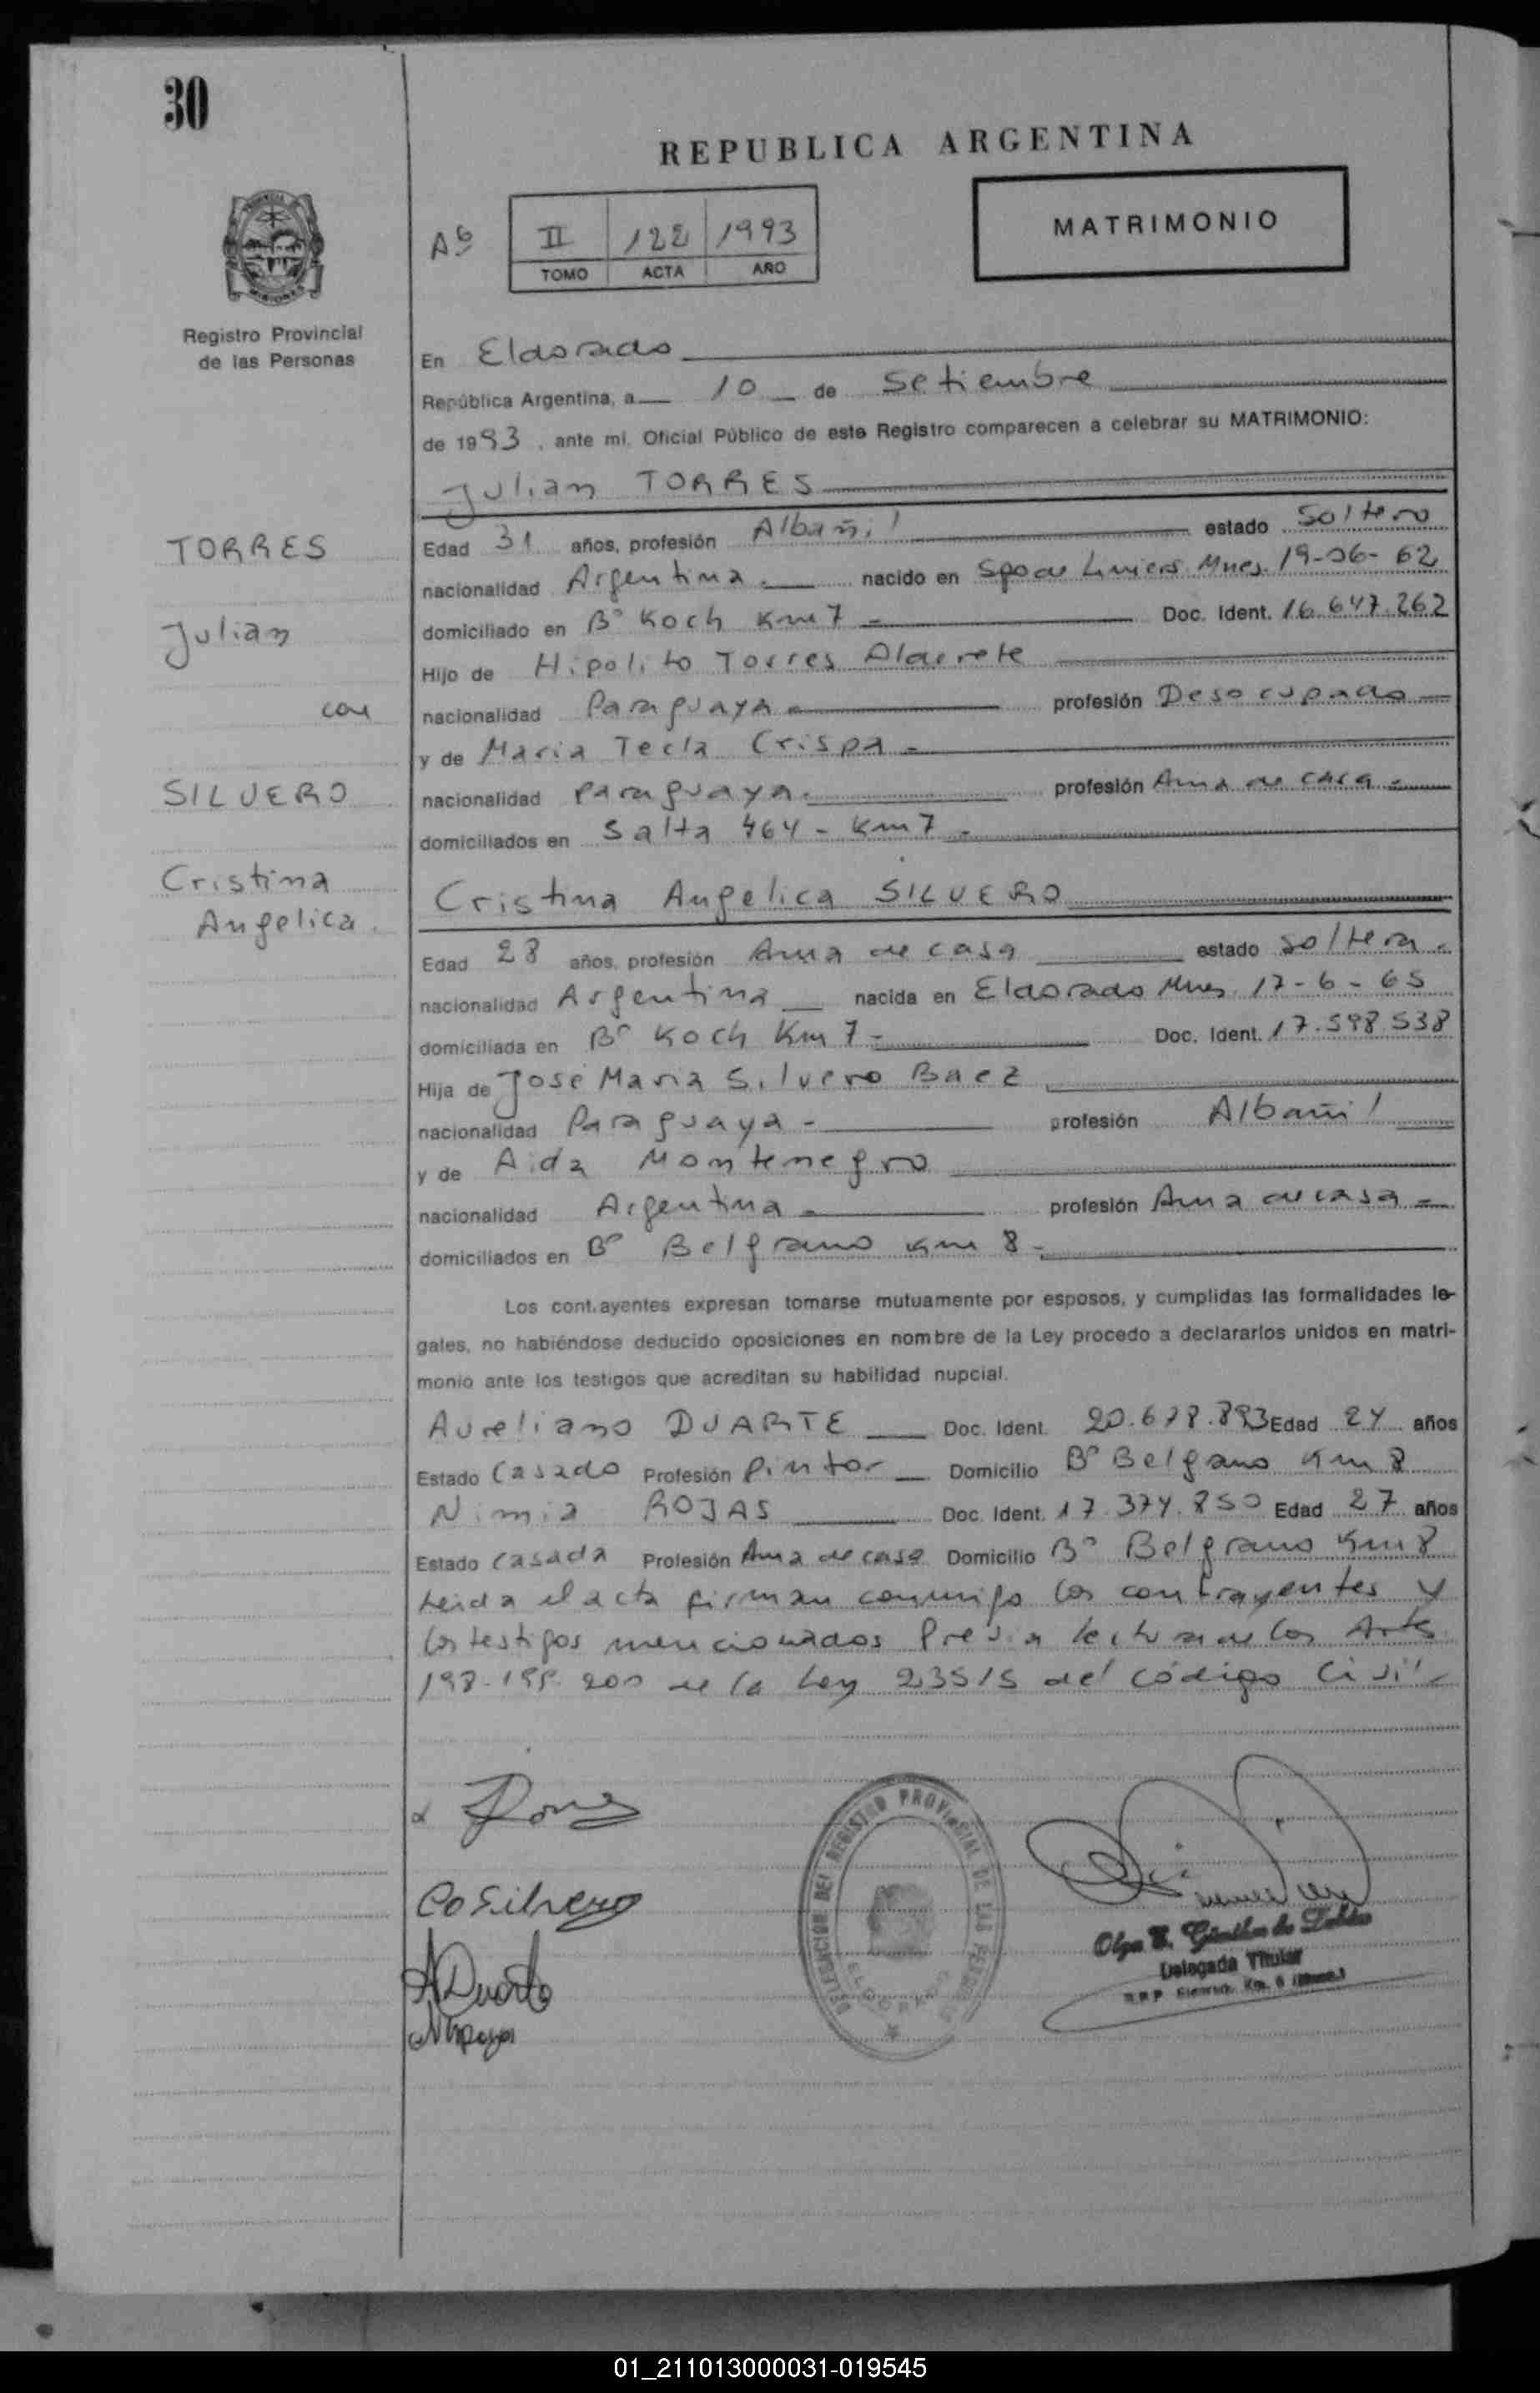 30
REPUBLICA ARGENTINA
MATRIMONIO
A6 II 122 1993
TOMO ACTA AÑO
Registro Provincial
de las Personas
En Eldorado
República Argentina, a 10 de Setiembre
de 1993, ante mi, Oficial Público de este Registro comparecen a celebrar su MATRIMONIO:
Julian TORRES
TORRES
Julian
con
SILVERO
Cristina
Angelica.
Edad 31 años, profesión Albañil estado Soltero
nacionalidad Argentina. nacido en Spo de Liniers Mnes. 19-06-62
domiciliado en B° Koch Km 7 Doc. Ident. 16.647.262
Hijo de Hipolito Torres Alderete
nacionalidad Paraguaya profesión Desocupado
y de Maria Tecla Crispa
nacionalidad Paraguaya. profesión Ama de casa
domiciliados en Salta 464 - Km 7
Cristina Angelica SILVERO
Edad 28 años, profesión Ama de casa estado Soltera
nacionalidad Argentina nacida en Eldorado Mnes 17-6-65
domiciliada en B° Koch Km 7 Doc. Ident. 17.598.538
Hija de José Maria Silvero Baez
nacionalidad Paraguaya profesión Albañil
y de Aida Montenegro
nacionalidad Argentina profesión Ama de casa
domiciliados en B° Belgrano Km 8
Los cont.ayentes expresan tomarse mutuamente por esposos, y cumplidas las formalidades le-
gales, no habiéndose deducido oposiciones en nombre de la Ley procedo a declararlos unidos en matri-
monio ante los testigos que acreditan su habilidad nupcial.
Aureliano DUARTE Doc. Ident. 20.678.893 Edad 24 años
Estado Casado Profesión Pintor Domicilio B° Belgrano Km 8
Nimia ROJAS Doc. Ident. 17.374.850 Edad 27 años
Estado Casada Profesión Ama de casa Domicilio B° Belgrano Km 8
Leida el acta firman conmigo los contrayentes y
los testigos mencionados Previa lectura de los Arts
198-199-200 de la Ley 23515 del código Civil
DELEGACION DEL REGISTRO PROVINCIAL DE LAS PERSONAS
ELDORADO
C Silvero
ADuarte
Olga
Delegada Titular
01_211013000031-019545